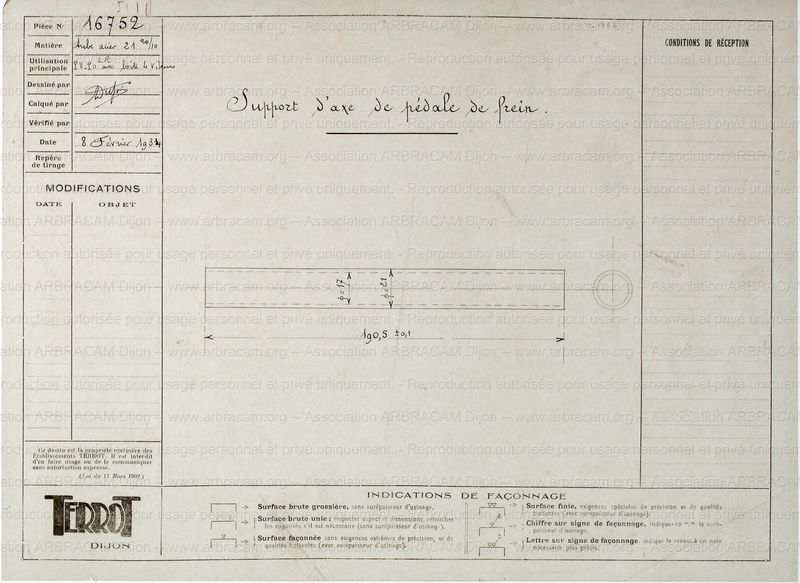 Pièce N° 16752
Matière Tube acier 21 20/10
Utilisation principale
Dessiné par
Calqué par
Vérifié par
Date 8 Février 193
Repère de tirage
MODIFICATIONS
DATE OBJET
Support d'axe de pédale de frein.
CONDITIONS DE RÉCEPTION
φ=17
φ=21
190,5 ±0,1
Ce dessin est la propriété exclusive des
Etablissements TERROT. Il est interdit
d'en faire usage ou de le communiquer
sans autorisation expresse.
(Loi du 11 Mars 1902.)
TERROT
DIJON
INDICATIONS DE FAÇONNAGE
Surface brute grossière, sans surépaisseur d'usinage.
Surface brute unie : respecter aspect et dimensions, retoucher
les rugosités s'il est nécessaire (sans surépaisseur d'usinage).
Surface façonnée sans exigences extrêmes de précision, ni de
qualités frottantes (avec surépaisseur d'usinage).
Surface finie, exigences spéciales de précision et de qualités
frottantes (avec surépaisseur d'usinage).
Chiffre sur signe de façonnage, indique la surépaisseur d'usinage.
Lettre sur signe de façonnage, indique le renvoi à une note
nécessaire plus précis.
www.arbracam.org – Association ARBRACAM Dijon – www.arbracam.org – Association ARBRACAM Dijon
Reproduction autorisée pour usage personnel et privé uniquement. - Reproduction autorisée pour usage personnel et privé uniquement.